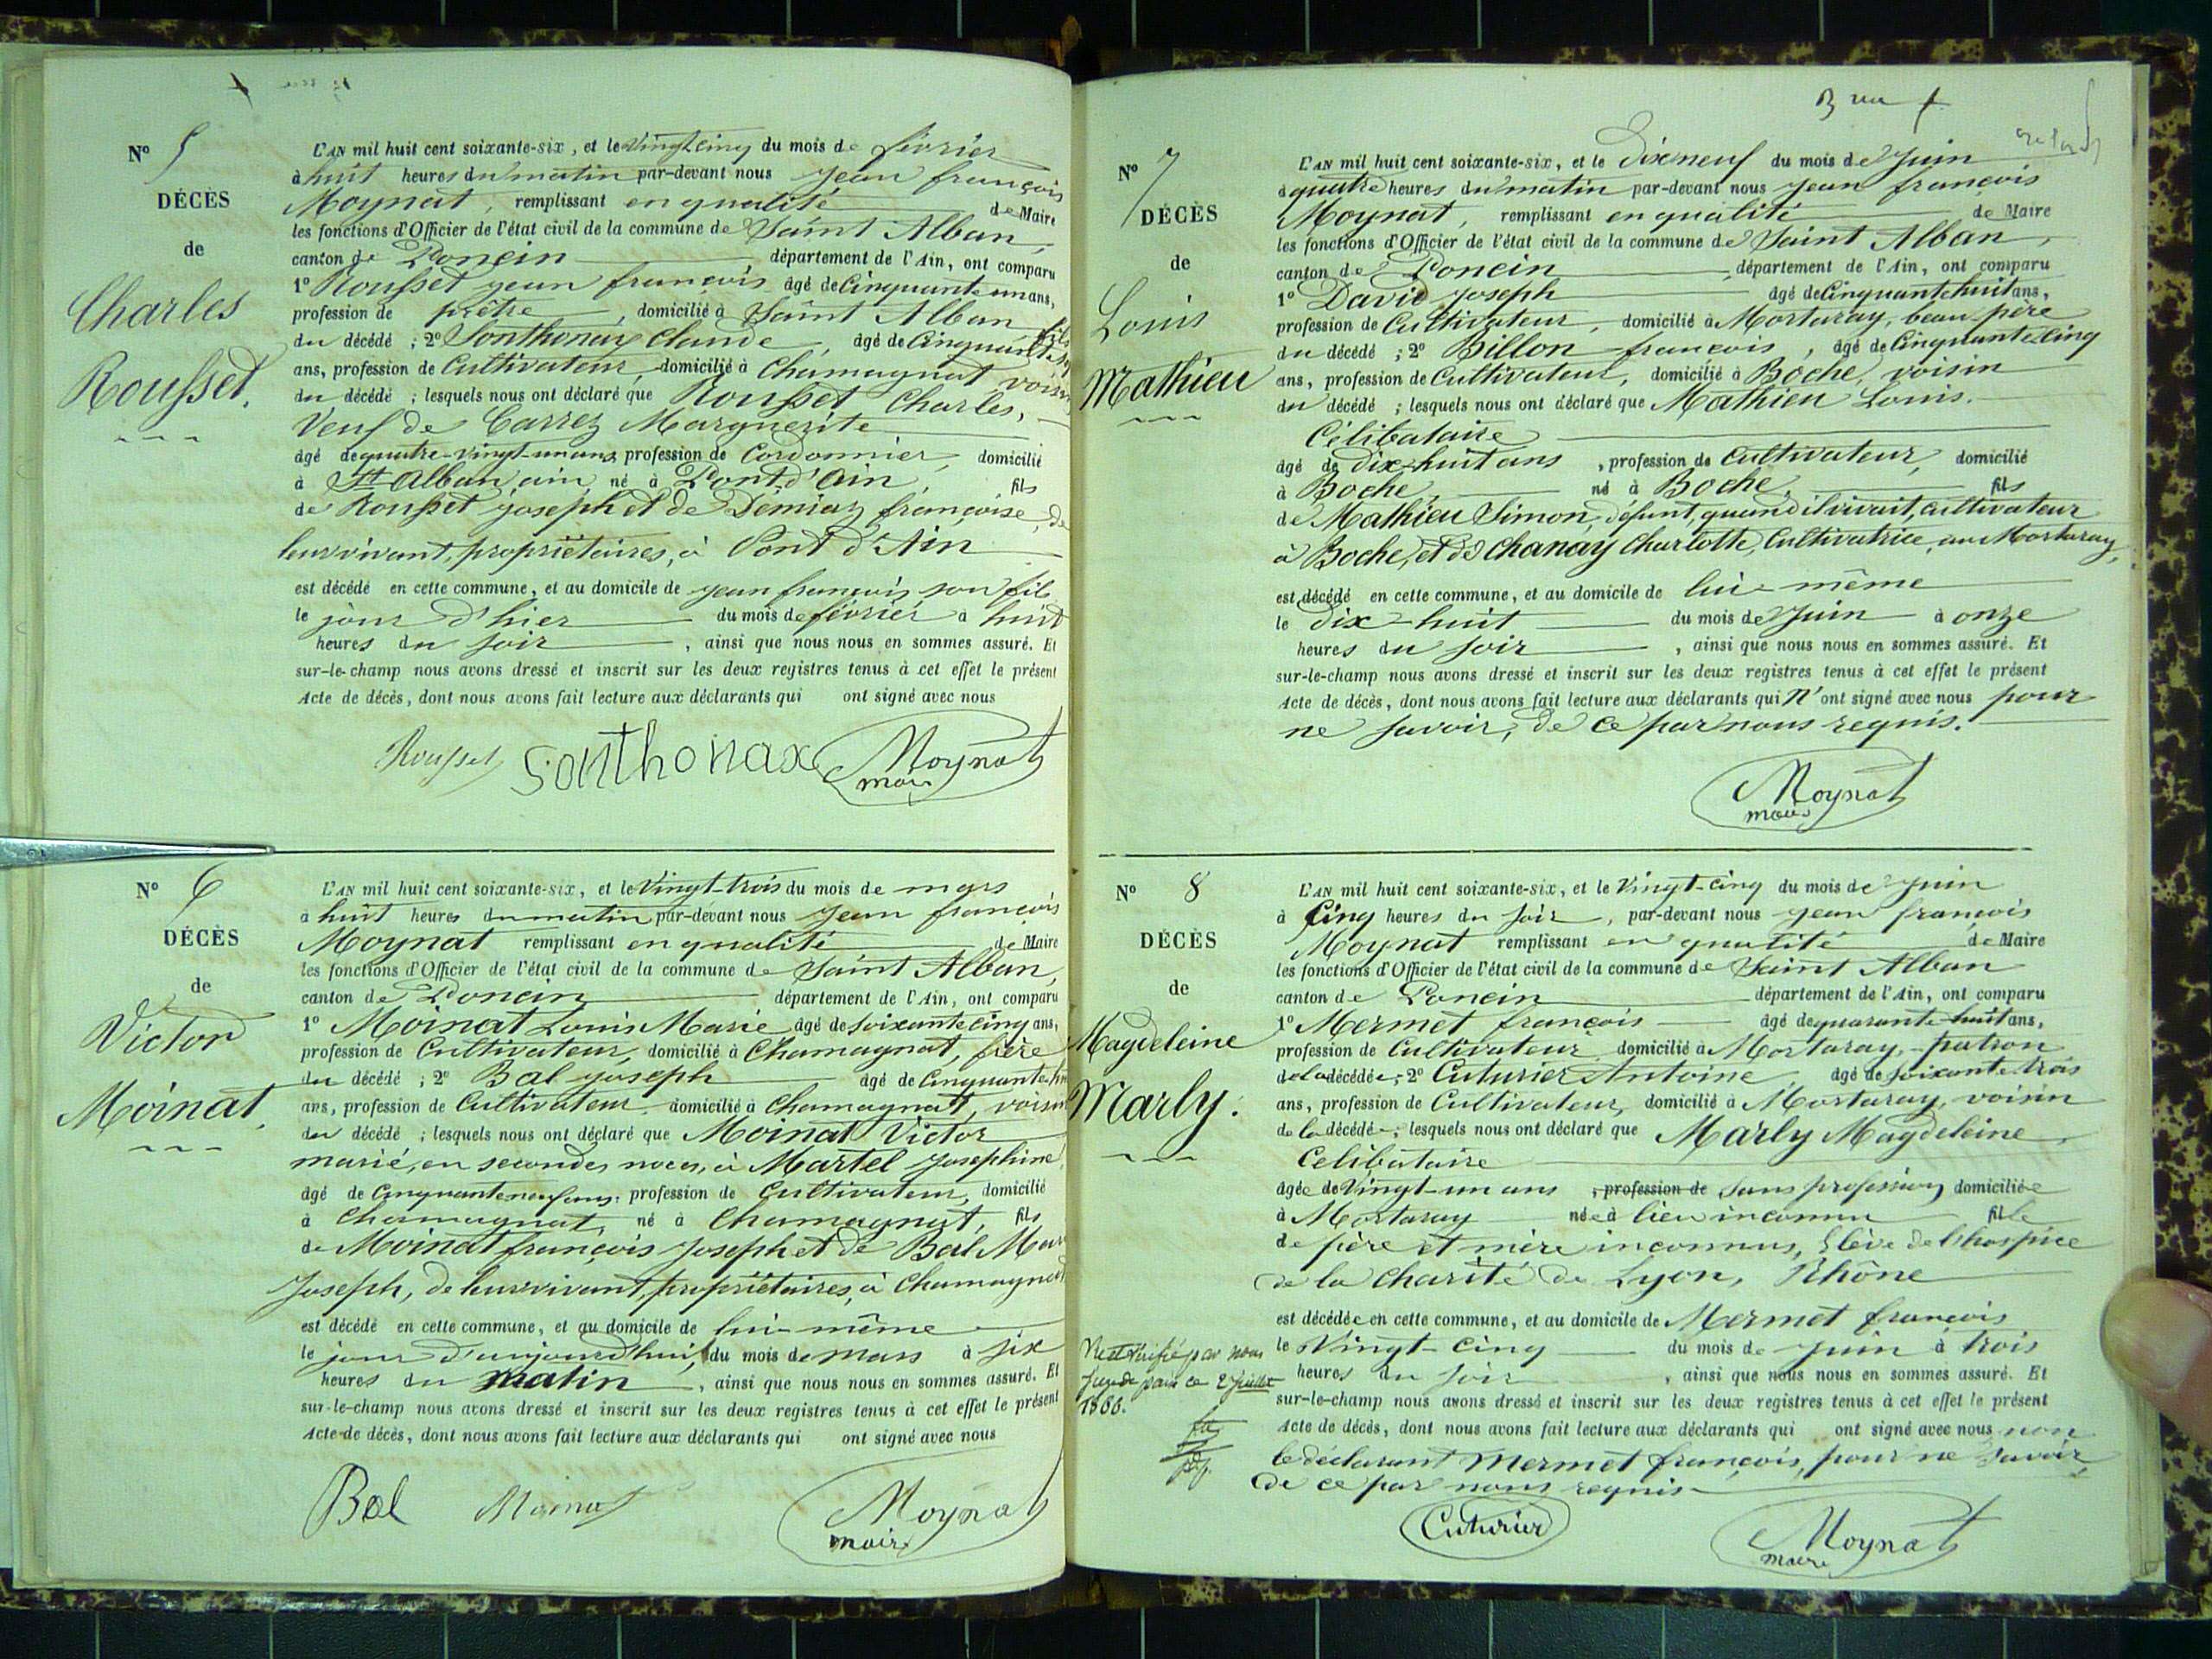 Nº 5
DÉCÈS
de
Charles
Rousset.
L'AN mil huit cent soixante-six, et le vingt cinq du mois de février
à huit heures du matin par-devant nous Jean françois
Moynat, remplissant en qualité de Maire
les fonctions d'Officier de l'état civil de la commune de Saint Alban,
canton de Poncin département de l'Ain, ont comparu
1º Rousset jean françois âgé de Cinquante un ans,
profession de prêtre, domicilié à Saint Alban fils
du décédé ; 2º Sonthonay Claude, âgé de Cinquante
ans, profession de Cultivateur, domicilié à Chamagnat voisin
du décédé ; lesquels nous ont déclaré que Rousset Charles,
Veuf de Carrez Marguerite
âgé de quatre-vingt-un ans profession de Cordonnier, domicilié
à St Alban ain, né à Pont d'Ain, fils
de Rousset joseph et de Démiaz françoise, de
leur vivant, propriétaires, à Pont d'Ain
est décédé en cette commune, et au domicile de jean françois son fils
le jour d'hier du mois de février à huit
heures du soir, ainsi que nous nous en sommes assuré. Et
sur-le-champ nous avons dressé et inscrit sur les deux registres tenus à cet effet le présent
Acte de décès, dont nous avons fait lecture aux déclarants qui ont signé avec nous
Rousset Sonthonax Moynat
maire
Nº 6
DÉCÈS
de
Victor
Moinat.
L'AN mil huit cent soixante-six, et le Vingt-trois du mois de mars
à huit heures du matin par-devant nous Jean françois
Moynat remplissant en qualité de Maire
les fonctions d'Officier de l'état civil de la commune de Saint Alban,
canton de Poncin département de l'Ain, ont comparu
1º Moinat Louis Marie âgé de soixante cinq ans,
profession de Cultivateur, domicilié à Chamagnat, frère
du décédé ; 2º Bal joseph âgé de Cinquante
ans, profession de Cultivateur domicilié à Chamagnat, voisin
du décédé ; lesquels nous ont déclaré que Moinat Victor
marié, en secondes noces, à Martel Josephine
âgé de Cinquante neuf ans, profession de Cultivateur, domicilié
à Chamagnat, né à Chamagnat, fils
de Moinat françois Joseph et de Bal Mar
Joseph, de leur vivant, propriétaires, à Chamagnat
est décédé en cette commune, et au domicile de lui-même
le jour d'aujourd'hui, du mois de mars à six
heures du matin, ainsi que nous nous en sommes assuré. Et
sur-le-champ nous avons dressé et inscrit sur les deux registres tenus à cet effet le présent
Acte de décès, dont nous avons fait lecture aux déclarants qui ont signé avec nous
Bal Moinat Moynat
maire
Nº 7
DÉCÈS
de
Louis
Mathieu
L'AN mil huit cent soixante-six, et le Dix neuf du mois de Juin
à quatre heures du matin par-devant nous Jean françois
Moynat, remplissant en qualité de Maire
les fonctions d'Officier de l'état civil de la commune de Saint Alban,
canton de Poncin département de l'Ain, ont comparu
1º David Joseph âgé de Cinquante huit ans,
profession de Cultivateur, domicilié à Mortaray, beau père
du décédé ; 2º Billon françois, âgé de Cinquante Cinq
ans, profession de Cultivateur, domicilié à Boche, voisin
du décédé ; lesquels nous ont déclaré que Mathieu Louis.
Célibataire
âgé de dix-huit ans, profession de Cultivateur, domicilié
à Boche, né à Boche fils
de Mathieu Simon, défunt, quand il vivait, cultivateur
à Boche, et de Chanay Charlotte, Cultivatrice, au Mortaray,
est décédé en cette commune, et au domicile de lui-même
le dix-huit du mois de Juin à onze
heures du soir, ainsi que nous nous en sommes assuré. Et
sur-le-champ nous avons dressé et inscrit sur les deux registres tenus à cet effet le présent
Acte de décès, dont nous avons fait lecture aux déclarants qui n'ont signé avec nous pour
ne savoir, de ce par nous requis.
Moynat
maire
Nº 8
DÉCÈS
de
Magdeleine
Marly.
L'AN mil huit cent soixante-six, et le Vingt-cinq du mois de Juin
à Cinq heures du soir, par-devant nous Jean françois
Moynat remplissant en qualité de Maire
les fonctions d'Officier de l'état civil de la commune de Saint Alban
canton de Poncin département de l'Ain, ont comparu
1º Mermet françois âgé de quarante-huit ans,
profession de Cultivateur domicilié à Mortaray, patron
de la décédée ; 2º Cuturier Antoine âgé de soixante trois
ans, profession de Cultivateur, domicilié à Mortaray, voisin
de la décédée ; lesquels nous ont déclaré que Marly Magdeleine,
Celibataire
âgée de Vingt-un ans, profession de sans profession, domiciliée
à Mortaray née à lieu inconnu fille
de père et mère inconnus, Elève de l'hospice
de la Charité de Lyon, Rhône
est décédée en cette commune, et au domicile de Mermet françois
le Vingt-cinq du mois de Juin à trois
heures du soir, ainsi que nous nous en sommes assuré. Et
sur-le-champ nous avons dressé et inscrit sur les deux registres tenus à cet effet le présent
Acte de décès, dont nous avons fait lecture aux déclarants qui ont signé avec nous non
le déclarant Mermet françois, pour ne savoir,
de ce par nous requis
Cuturier Moynat
maire
Vu et vérifié par nous
juge de paix ce 2 Juillet
1866.